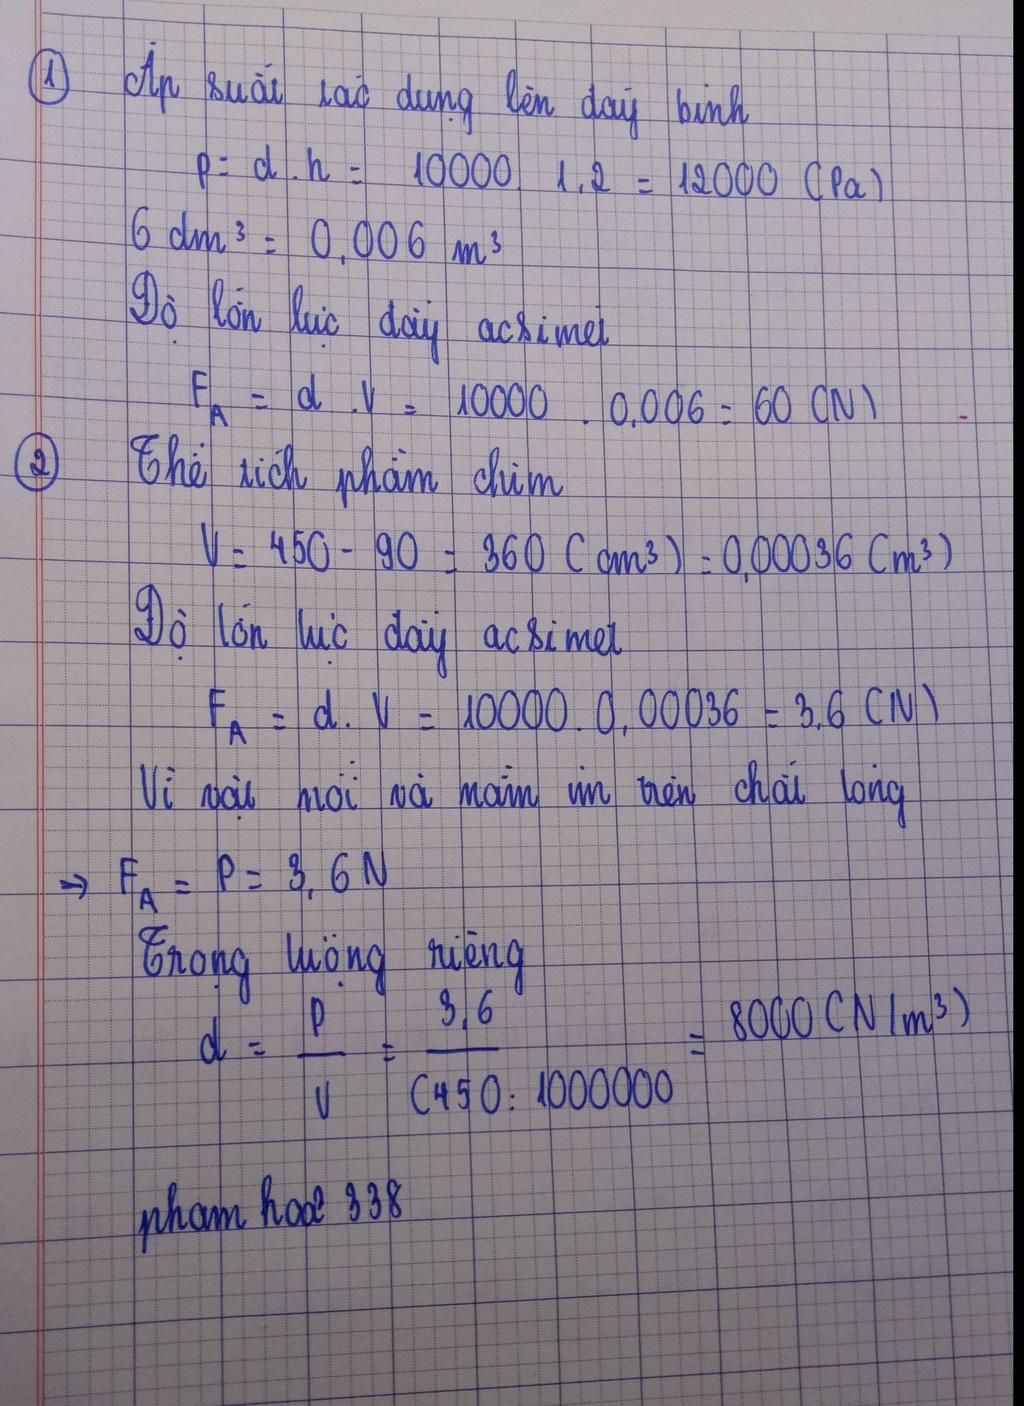 ① Áp suất tác dụng lên đáy bình
p = d . h = 10000 . 1,2 = 12000 (Pa)
6 dm³ = 0,006 m³
Độ lớn lực đẩy acsimet
F_A = d . V = 10000 . 0,006 = 60 (N)
② Thể tích phần chìm
V = 450 - 90 = 360 (cm³) = 0,00036 (m³)
Độ lớn lực đẩy acsimet
F_A = d . V = 10000 . 0,00036 = 3,6 (N)
Vì vật nổi và nằm im trên chất lỏng
⇒ F_A = P = 3,6 N
Trọng lượng riêng
d = P / V = 3,6 / (450 : 1000000 = 8000 (N/m³)
pham hoa 338